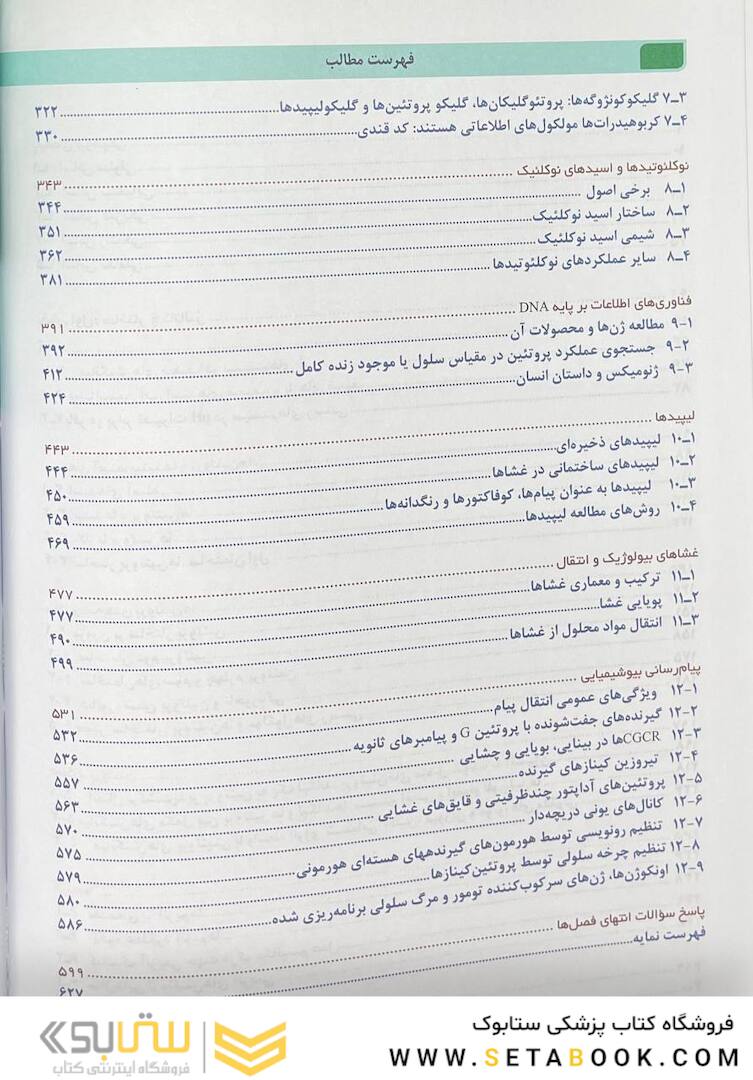 فهرست مطالب
۷ـ۳ گلیکوکونژوگه‌ها: پروتئوگلیکان‌ها، گلیکو پروتئین‌ها و گلیکولیپیدها ۳۲۲
۷ـ۴ کربوهیدرات‌ها مولکول‌های اطلاعاتی هستند: کد قندی ۳۳۰
نوکلئوتیدها و اسیدهای نوکلئیک ۳۴۳
۸ـ۱ برخی اصول ۳۴۴
۸ـ۲ ساختار اسید نوکلئیک ۳۵۱
۸ـ۳ شیمی اسید نوکلئیک ۳۶۲
۸ـ۴ سایر عملکردهای نوکلئوتیدها ۳۸۱
فناوری‌های اطلاعات بر پایه DNA ۳۹۱
۹-۱ مطالعه ژن‌ها و محصولات آن ۳۹۲
۹-۲ جستجوی عملکرد پروتئین در مقیاس سلول یا موجود زنده کامل ۴۱۲
۹-۳ ژنومیکس و داستان انسان ۴۲۴
لیپیدها ۴۴۳
۱۰ـ۱ لیپیدهای ذخیره‌ای ۴۴۴
۱۰ـ۲ لیپیدهای ساختمانی در غشاها ۴۵۰
۱۰ـ۳ لیپیدها به عنوان پیام‌ها، کوفاکتورها و رنگدانه‌ها ۴۵۹
۱۰ـ۴ روش‌های مطالعه لیپیدها ۴۶۹
غشاهای بیولوژیک و انتقال ۴۷۷
۱۱ـ۱ ترکیب و معماری غشاها ۴۷۷
۱۱ـ۲ پویایی غشا ۴۹۰
۱۱ـ۳ انتقال مواد محلول از غشاها ۴۹۹
پیام‌رسانی بیوشیمیایی ۵۳۱
۱۲-۱ ویژگی‌های عمومی انتقال پیام ۵۳۲
۱۲-۲ گیرنده‌های جفت‌شونده با پروتئین G و پیامبرهای ثانویه ۵۳۶
۱۲-۳ CGCRها در بینایی، بویایی و چشایی ۵۵۷
۱۲-۴ تیروزین کینازهای گیرنده ۵۶۳
۱۲-۵ پروتئین‌های آداپتور چندظرفیتی و قایق‌های غشایی ۵۷۰
۱۲-۶ کانال‌های یونی دریچه‌دار ۵۷۵
۱۲-۷ تنظیم رونویسی توسط هورمون‌های گیرندههای هسته‌ای هورمونی ۵۷۹
۱۲-۸ تنظیم چرخه سلولی توسط پروتئین‌کینازها ۵۸۰
۱۲-۹ اونکوژن‌ها، ژن‌های سرکوب‌کننده تومور و مرگ سلولی برنامه‌ریزی شده ۵۸۶
پاسخ سؤالات انتهای فصل‌ها ۵۹۹
فهرست نمایه ۶۲۷
فروشگاه کتاب پزشکی ستابوک
WWW.SETABOOK.COM
ستابوک
فروشگاه اینترنتی کتاب